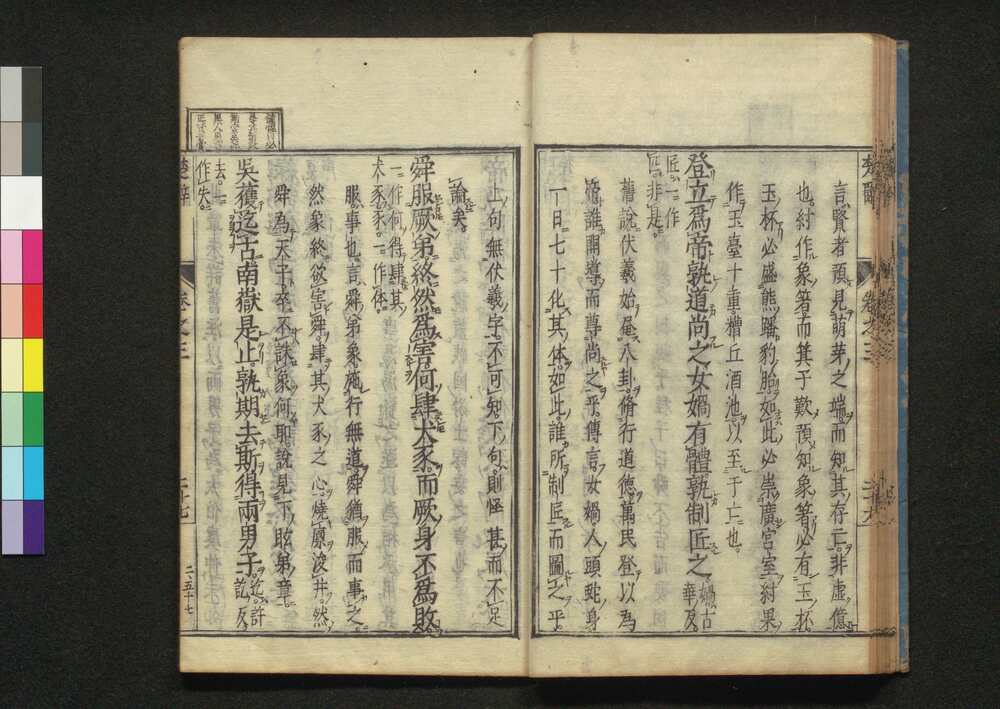 言賢者預見萌芽之端而知其存亡非虛億
也紂作象箸而箕子歎預知象箸必有玉杯
玉杯必盛熊蹯豹胎如此必崇廣宮室紂果
作玉臺十重糟丘酒池以至于亡也
登立爲帝孰道尚之女媧有體孰制匠之媧古
華反
匠一作
匠非是
舊說伏羲始畫八卦脩行道德萬民登以爲
帝誰開導而尊尚之乎傳言女媧人頭蛇身
一日七十化其体如此誰所制匠而圖之乎
上句無伏羲字不可知下句則怪甚而不足
論矣
舜服厥弟終然爲害何肆犬豕而厥身不爲敗
一作何得肆其
犬豕豕一作体
服事也言舜弟象施行無道舜猶服而事之
然象終欲害舜肆其犬豕之心燒廩浚井然
舜為天子卒不誅象何耶說見下眩弟章
吳獲迄古南嶽是止孰期去斯得兩男子迄許
訖反
去一
作失
楚辭
卷之三
二十七
二五十七